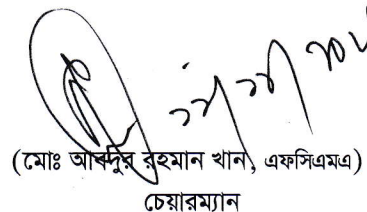 (মোঃ আবদুর রহমান খান, এফসিএমএ)
চেয়ারম্যান